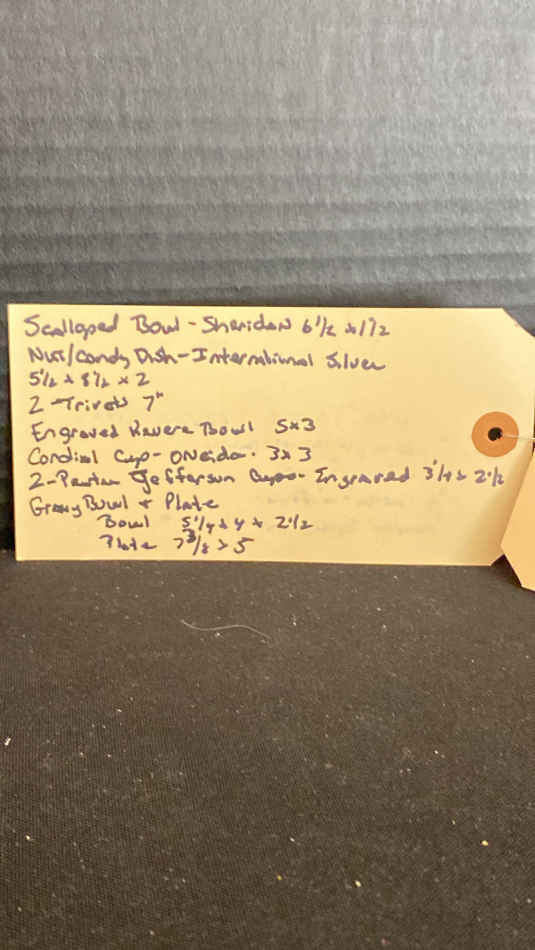 Scalloped Bowl - Sheridan 6 1/2 x 1 1/2
Nut/Candy Dish - International Silver
5 1/2 x 8 1/2 x 2
2 - Trivets 7"
Engraved Revere Bowl 5x3
Cordial Cup - Oneida - 3x3
2 - Pewter Jefferson Cups - Engraved 3 1/4 x 2 1/2
Gravy Bowl + Plate
Bowl 5 1/4 x 4 x 2 1/2
Plate 7 3/8 x 5